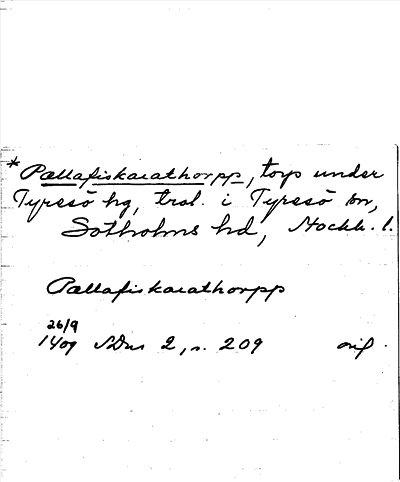 * Pællafiskarathorpp, torp under
Tyresö hg, trol. i Tyresö sn,
Sotholms hd, Stockh. l.
Pællafiskarathorpp
26/9
1409 SDns 2, s. 209 orig.